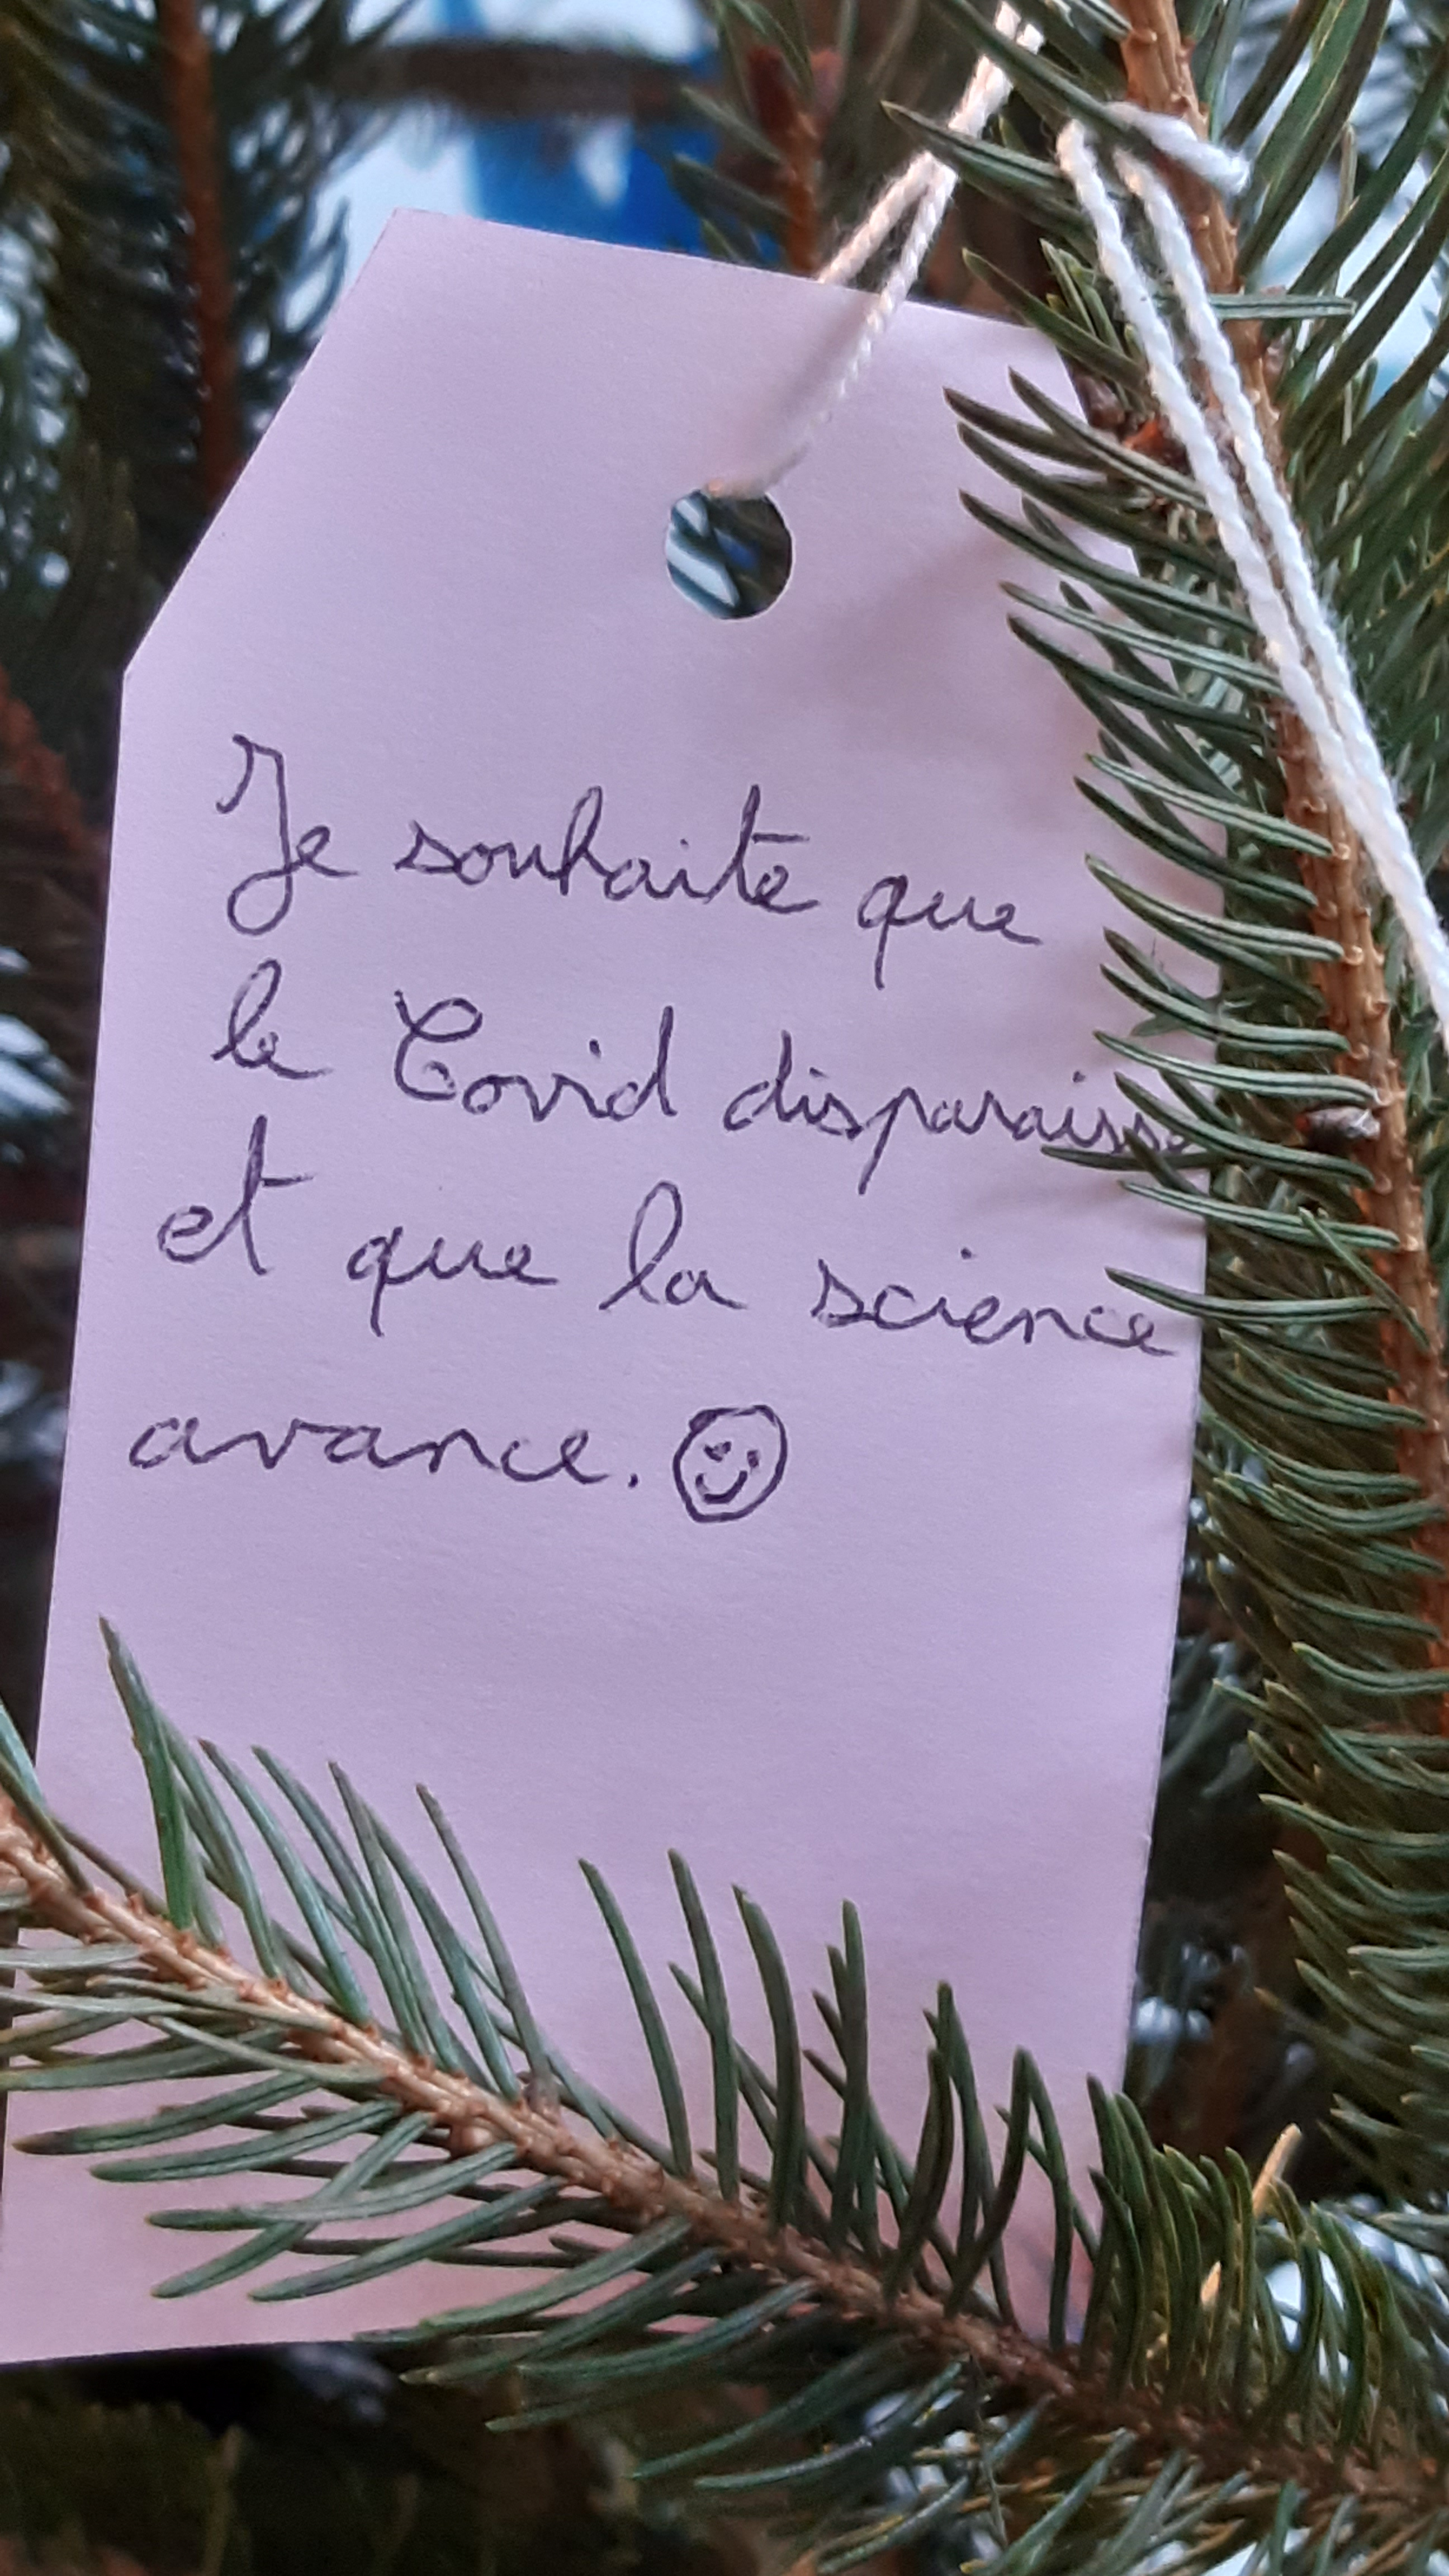 Je souhaite que
le Covid disparaisse
et que la science
avance. ☺